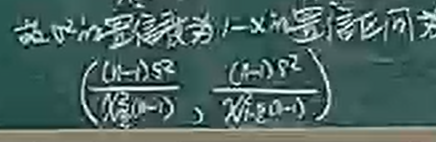 故σ²的置信度为1-α的置信区间为
( (n-1)S² / χ²_{α/2}(n-1) , (n-1)S² / χ²_{1-α/2}(n-1) )